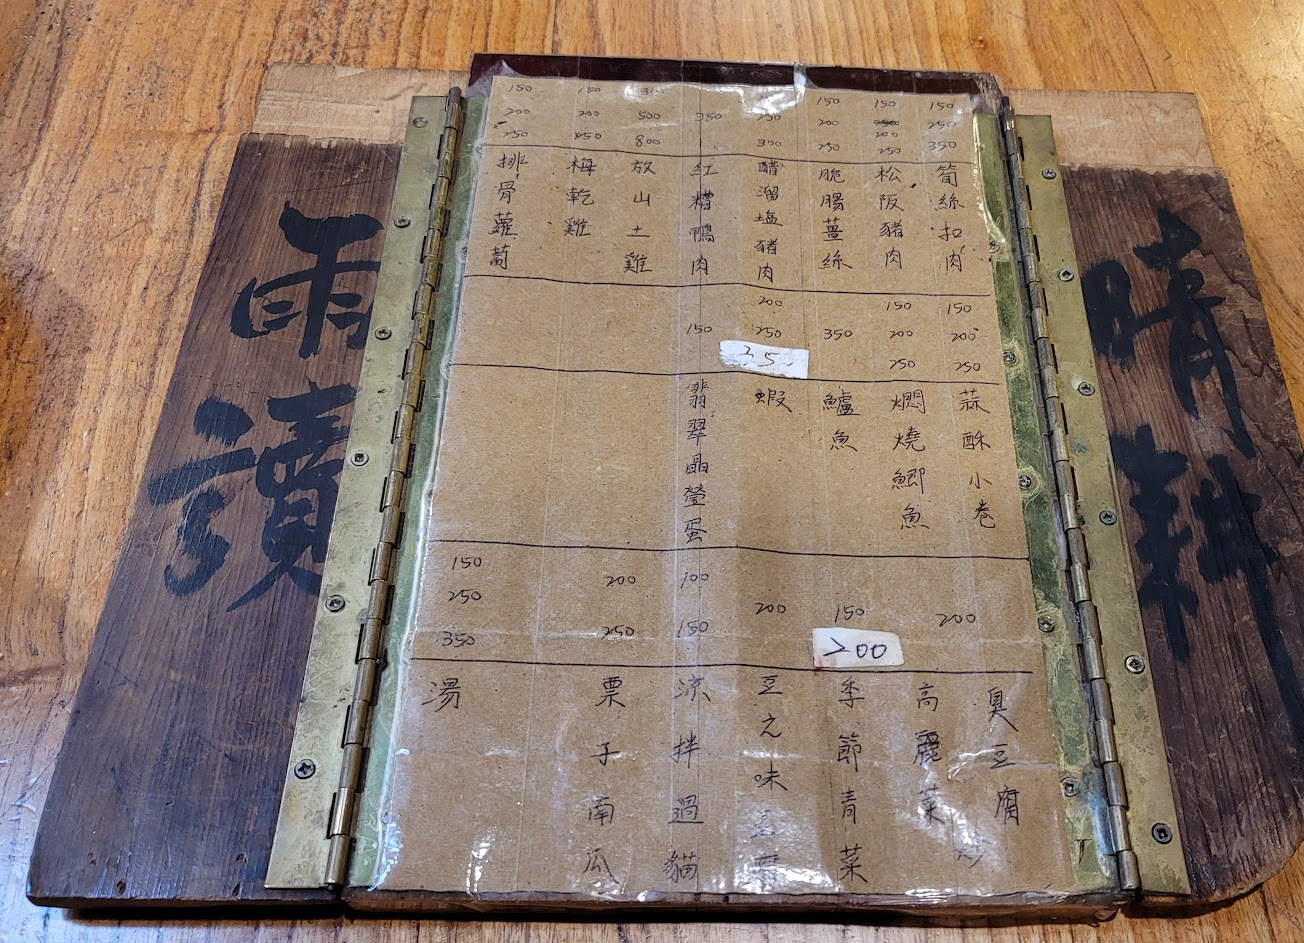 晴耕
雨讀
筍絲扣肉
150
250
350
松阪豬肉
150
200
250
脆腸薑絲
150
200
250
醋溜塩豬肉
250
300
紅糟鴨肉
350
放山土雞
300
500
800
梅乾雞
150
200
350
排骨蘿蔔
150
200
250
蒜酥小卷
150
200
250
燜燒鯽魚
150
200
250
鱸魚
350
蝦
200
250
翡翠晶瑩蛋
150
臭豆腐
高麗菜
200
季節青菜
150
200
豆之味豆腐
200
涼拌過貓
100
150
栗子南瓜
200
250
湯
150
250
350